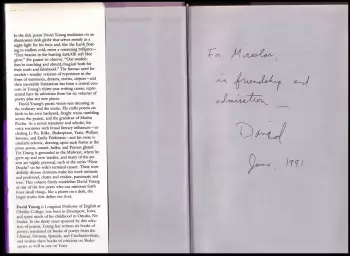 In the title poem David Young meditates on an
illuminated desk globe that serves mostly as a
night light for his boys and, like the Earth float-
ing in endless cold, seems a
"Tiny
glow." He pauses to observe, "Our models,
they're touching and absurd, magical both for
their truth and falsehood." The human need for
models—
the form of memories, dreams, stories,
their inevitable limitations has been a central con-
cern in Young's thirty-year writing career, repre-
sented here by selections from his six volumes of
poetry plus ten new pieces.
David Young's poetic vision sees meaning in
the ordinary and the exotic. He crafts poems out
birth to his own backyard, freight trains rumbling
across the prairie, and the grandeur of Machu
Picchu. As a noted translator and scholar, his
voice resonates with broad literary influences—in-
cluding Li Po, Rilke, Shakespeare, Yeats, Wallace
Stevens, and Emily Dickinson—and his verse is
similarly diverse, drawing upon such forms as the
prose poem, sonnet, haiku, and Persian ghazal.
Yet Young is grounded in the Midwest, where he
grew up and now teaches, and many of the po-
ems are highly personal, such as the series "Nine
Deaths" on his wife's terminal cancer. These won-
derfully diverse elements make his work intimate
and profound, chatty and erudite, passionate and
wise. This volume firmly establishes David Young
as one of the few poets who can summon forth
from small things, like a planet on a desk, the
larger truths that define our lives.
David Young is Longman Professor of English at
Oberlin College; was born in Davenport, Iowa;
and spent much of his childhood in Omaha, Ne-
braska. In the thirty years spanned by this selec-
tion of poems, Young has written six books of
poetry; translated six books of poetry from the
Chinese, German, Spanish, and Czechoslovakian;
and written three books of criticism on Shake-
speare as well as one of Yeats.
For Miroslav,
in friendship and
admiration —
David
June, 1991